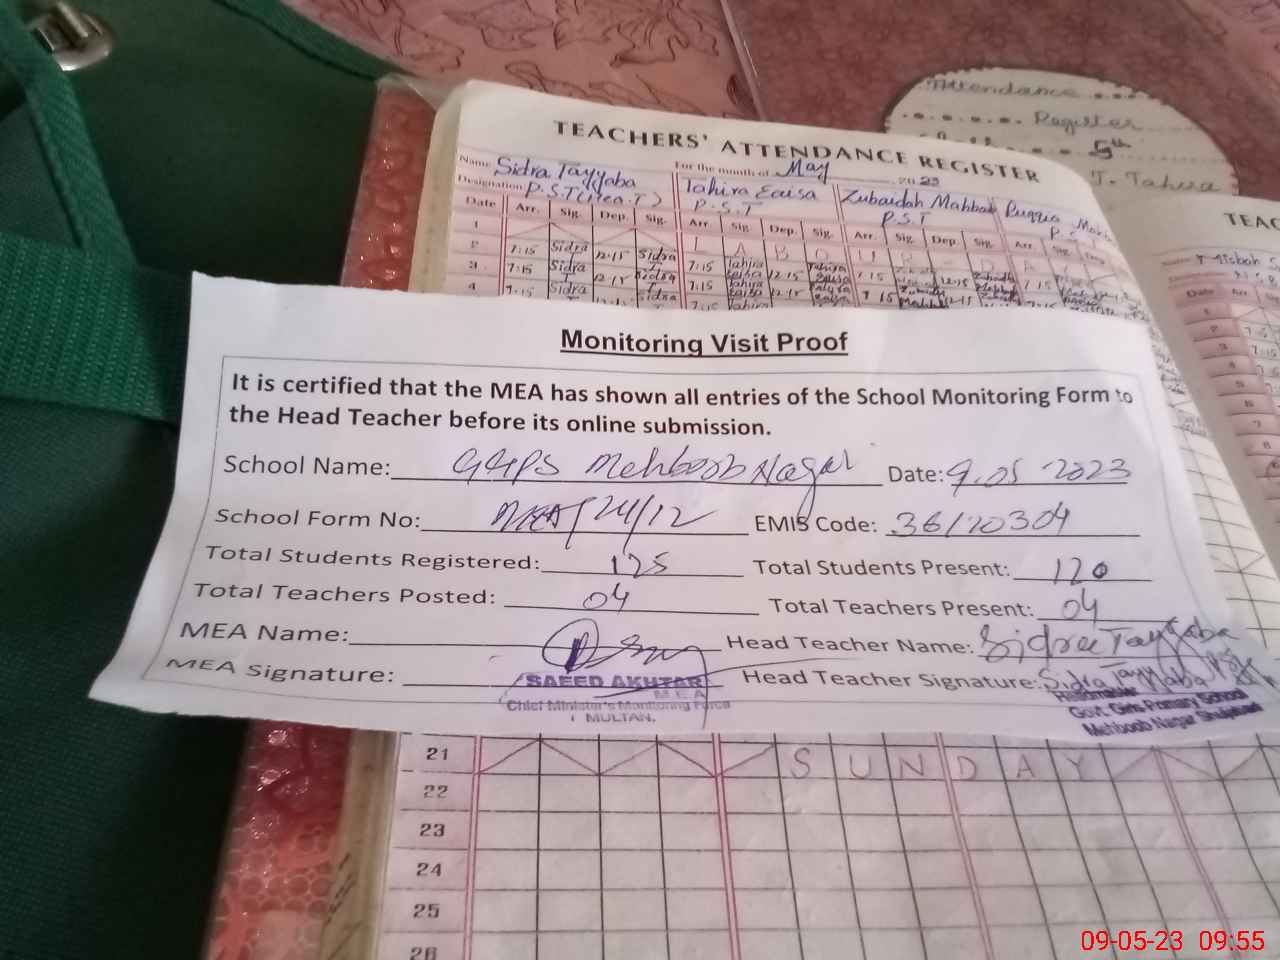 Attendance
Register
5th
T. Tahira
TEACHERS' ATTENDANCE REGISTER
Name Sidra Tayyaba For the month of May 2023
Designation P.S.T Tahira P.S.T Zubaidah P.S.T
Date Arr. Sig. Dep. Sig. Arr. Sig. Dep. Sig. Arr. Sig. Dep. Sig. Arr. Sig. Dep.
1 L A B O U R D A Y
2 7:15 Sidra 12:15 Sidra 7:15 Tahira 12:15 Tahira
3 7:15 Sidra 12:15 Sidra 7:15 Tahira 12:15
4 7:15 Sidra Sidra 7:15 Tahira
Monitoring Visit Proof
It is certified that the MEA has shown all entries of the School Monitoring Form to
the Head Teacher before its online submission.
School Name: GGPS Mehboob Nagar Date: 9.05 2023
School Form No: MEA/24/12 EMIS Code: 36120304
Total Students Registered: 125 Total Students Present: 120
Total Teachers Posted: 04 Total Teachers Present: 04
MEA Name: Head Teacher Name: Sidra Tayyaba
MEA Signature: Head Teacher Signature: Sidra Tayyaba
SAEED AKHTAR
M E A
Chief Minister's Monitoring Force
MULTAN.
Govt. Girls Primary School
Mehboob Nagar
21 S U N D A Y
22
23
24
25
26
09-05-23 09:55